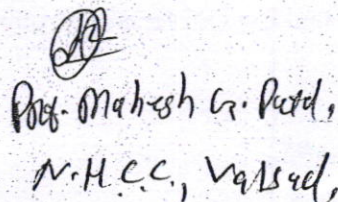 Prof. Mahesh G. Patel,
N.H.C.C., Valsad,